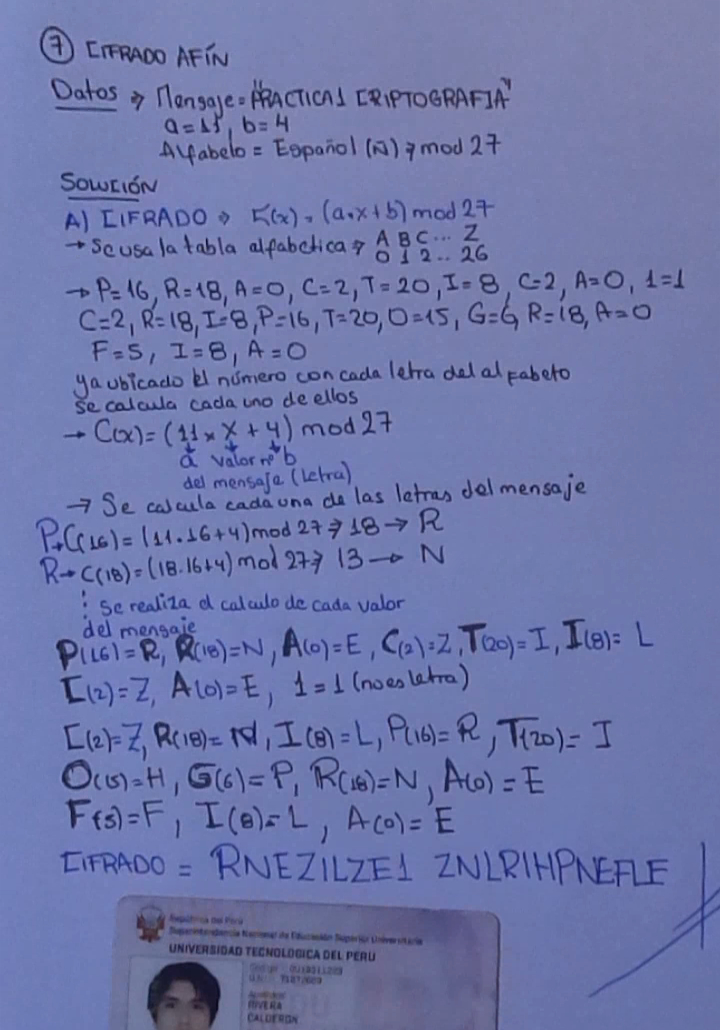 ⑦ CIFRADO AFÍN
Datos → Mensaje = "PRACTICA1 CRIPTOGRAFIA"
a=11, b=4
Alfabeto = Español (Ñ) → mod 27
SOLUCIÓN
A) CIFRADO → E(x) = (a.x+b) mod 27
→ Se usa la tabla alfabetica → A B C ... Z
0 1 2 .. 26
→ P=16, R=18, A=0, C=2, T=20, I=8, C=2, A=0, 1=1
C=2, R=18, I=8, P=16, T=20, O=15, G=6, R=18, A=0
F=5, I=8, A=0
ya ubicado el número con cada letra del alfabeto
se calcula cada uno de ellos
→ C(x)= (11 x X + 4) mod 27
a valor nº b
del mensaje (Letra)
→ Se calcula cada una de las letras del mensaje
P→C(16)= (11.16+4) mod 27 → 18 → R
R→ C(18)= (18.16+4) mod 27 → 13 → N
⋮ se realiza el calculo de cada valor
del mensaje
P(16)=R, R(18)=N, A(0)=E, C(2)=Z, T(20)=I, I(8)=L
C(2)=Z, A(0)=E, 1=1 (no es letra)
C(2)=Z, R(18)=N, I(8)=L, P(16)=R, T(20)=I
O(15)=H, G(6)=P, R(18)=N, A(0)=E
F(5)=F, I(8)=L, A(0)=E
CIFRADO = RNEZILZE1 ZNLRIHPNEFLE
República del Perú
Superintendencia Nacional de Educación Superior Universitaria
UNIVERSIDAD TECNOLOGICA DEL PERU
RIVERA
CALDERON